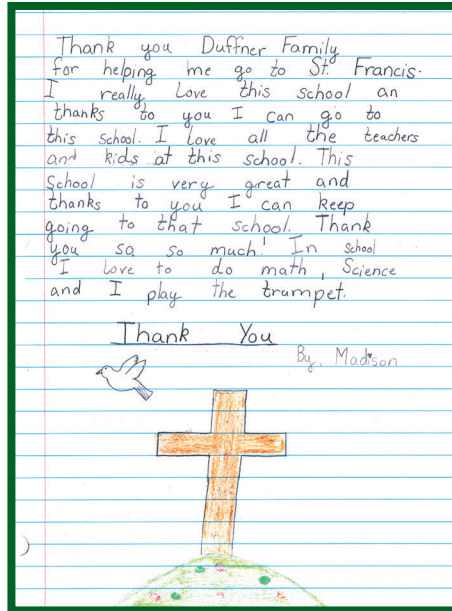 Thank you Duffner Family
for helping me go to St. Francis.
I really Love this school an
thanks to you I can go to
this school. I Love all the teachers
and kids at this school. This
School is very great and
thanks to you I can keep
going to that school. Thank
you so, so much! In school
I Love to do math, Science
and I play the trumpet.
Thank You
By, Madison